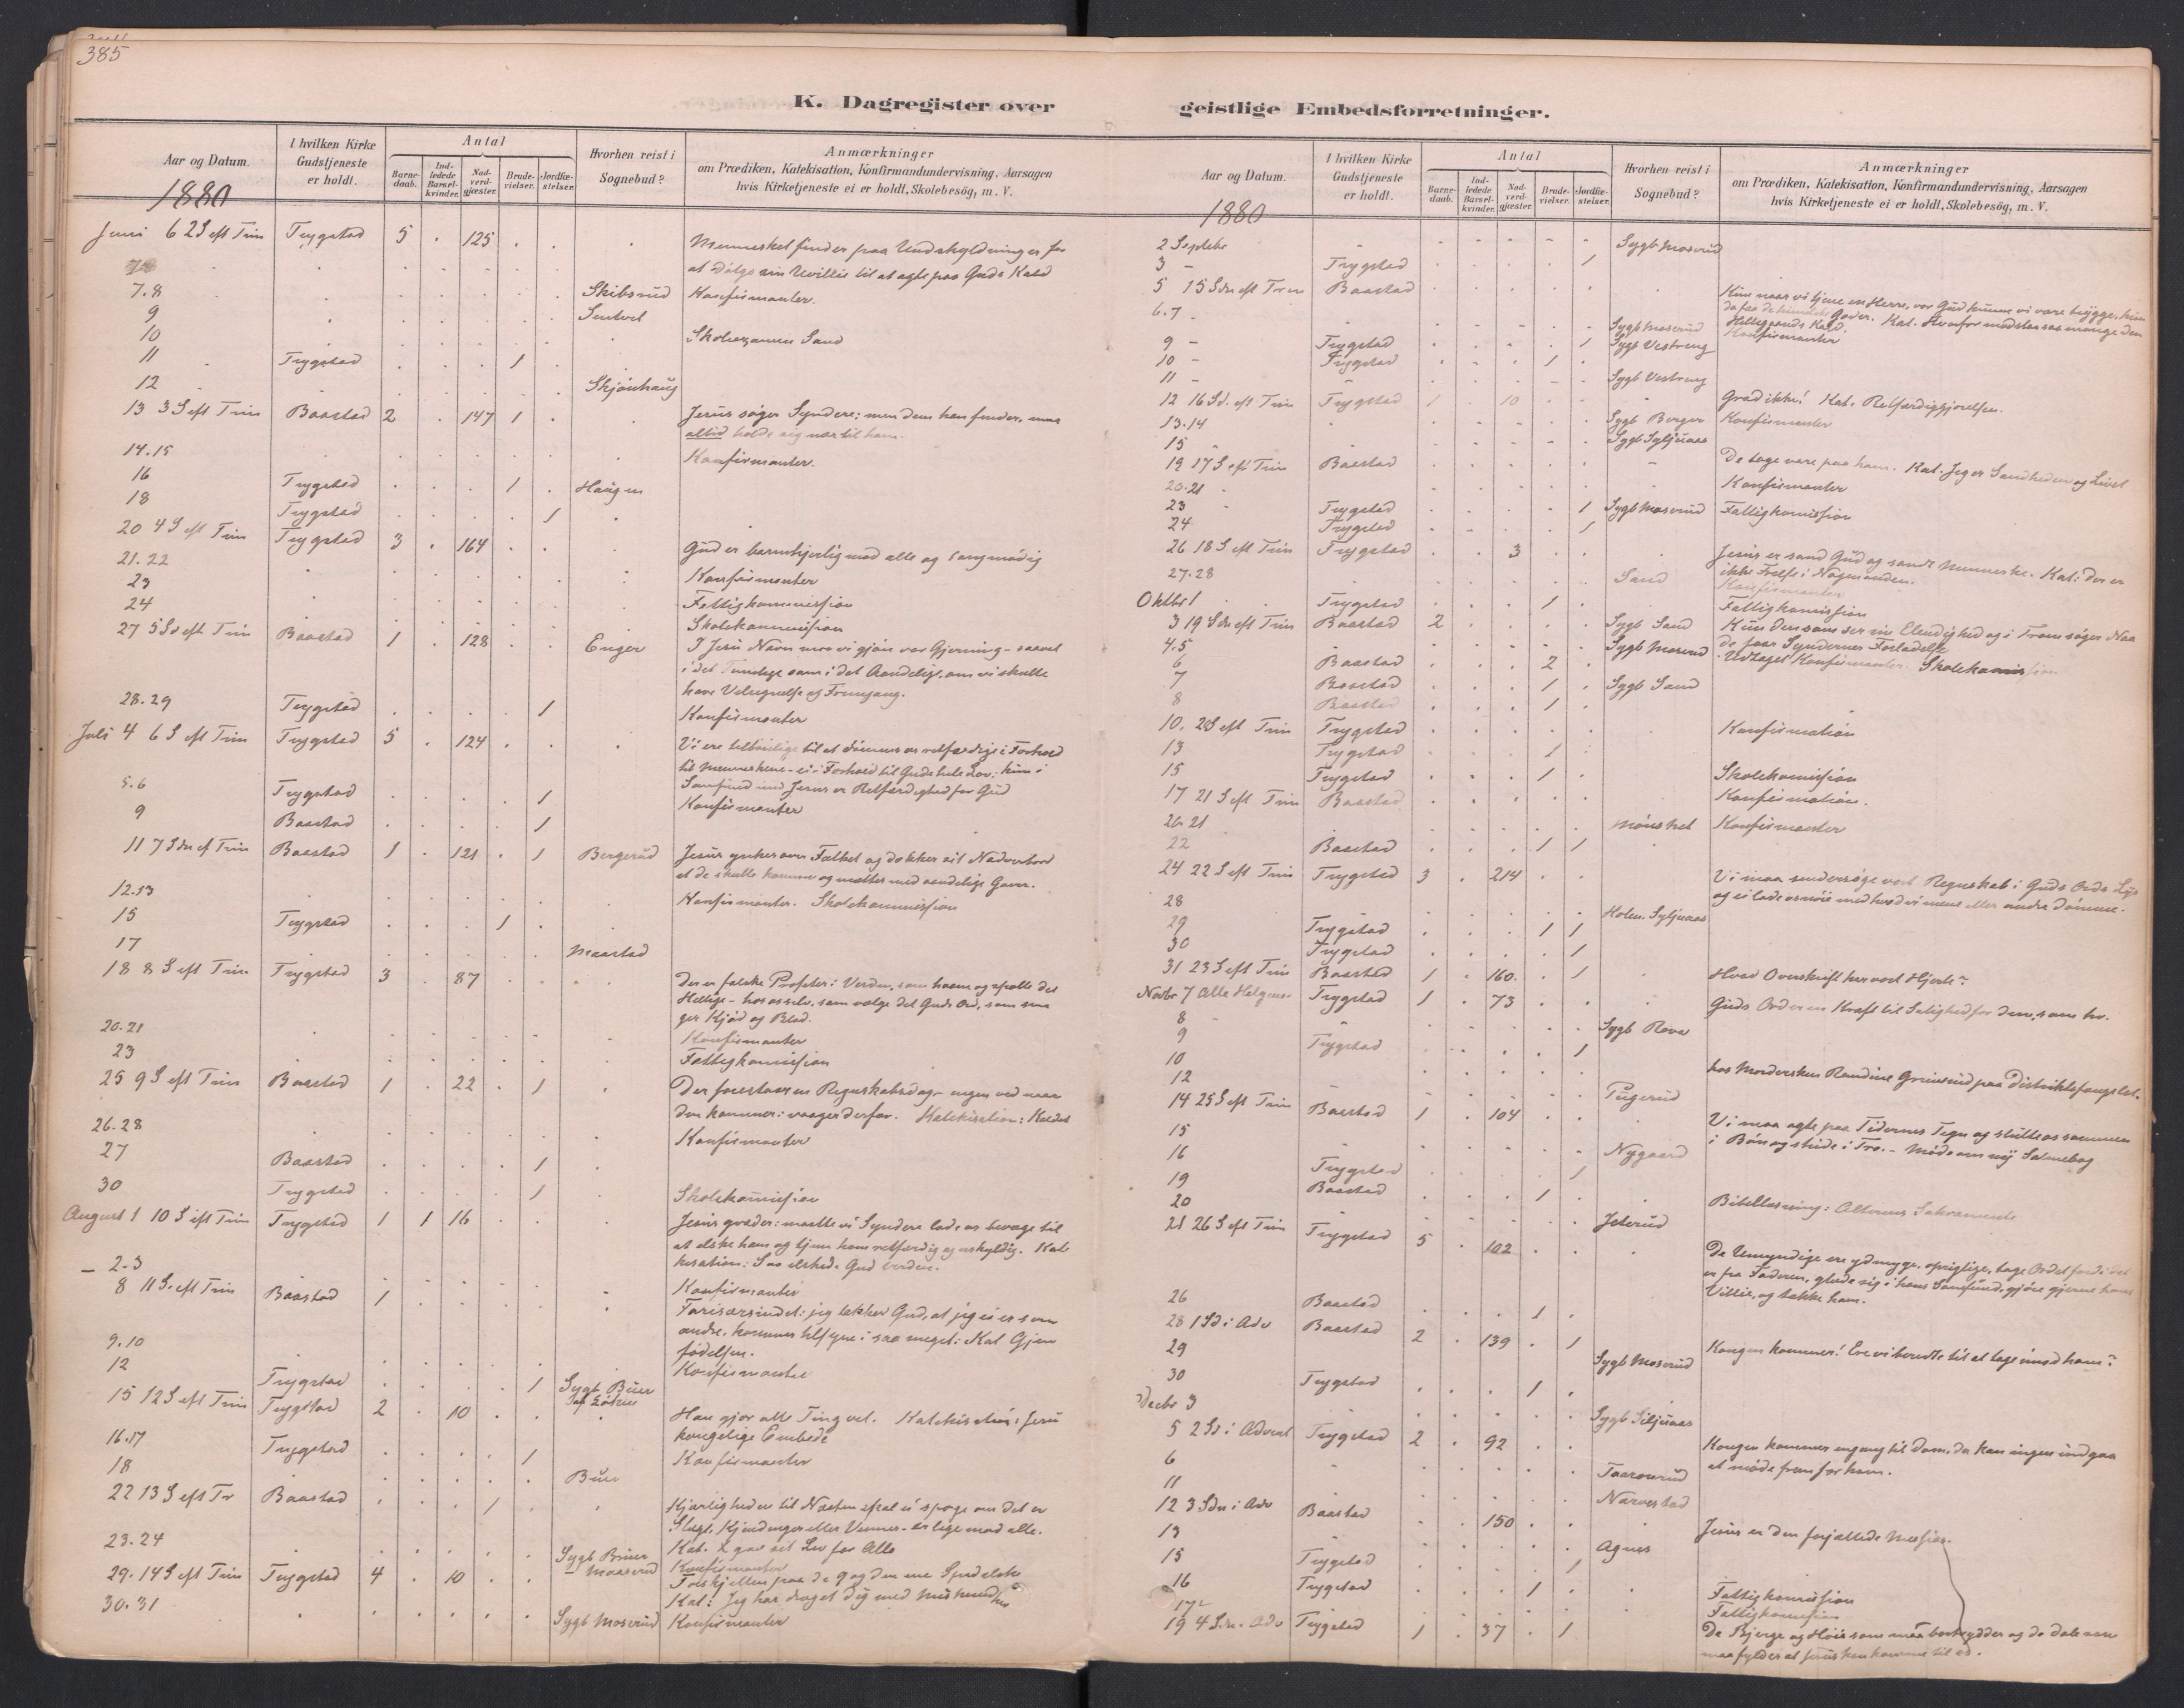 385
K. Dagregister over
Aar og Datum.
I hvilken Kirke Gudstjeneste er holdt.
Antal
Barnedaab.
Indledede Barselkvinder.
Nadverdgjæster.
Brudevielser.
Jordfæstelser.
Hvorhen reist i Sognebud?
Anmærkninger
om Prædiken, Katekisation, Konfirmandundervisning, Aarsagen
hvis Kirketjeneste ei er holdt, Skolebesög, m. V.
1880
Juni 6 2 S eft Trin Trygstad 5 . 125 . . . Mennesket finder paa Undskyldninger for
at dølge sin Uvillie til at agte paa Guds Kald
7.8 Skibsrud Konfirmanter.
9 Sentvet
10 Skoleexamen Sand
11 Trygstad 1
12 Skjønhaug
13 3 S eft Trin Baastad 2 . 147 1 . . Jesus søger Syndere: men dem han finder, maa
altid holde sig nær til ham.
14.15 Konfirmanter.
16 Trygstad 1 Haugen
18 Trygstad 1
20 4 S eft Trin Trygstad 3 . 164 . . . Gud er barmhjertig mod alle og langmodig
21.22 Konfirmanter
23 Fattigkommission
24 Skolekommission
27 5 Sd eft Trin Baastad 1 . 128 . . Enger I Jesu Navn maa vi gjøre vor Gjerning - saavel
i det Timelige som i det Aandelige, om vi skulle
have Velsignelse og Fremgang.
28.29 Trygstad 1 Konfirmanter
Juli 4 6 S eft Trin Trygstad 5 . 124 . . . Vi ere tilbøielige til at dømme os retfærdige i Forhold
til Menneskene - ei i Forhold til Guds hele Lov: kun i
Samfund med Jesus er Retfærdighed for Gud
5.6 Trygstad 1 Konfirmanter
9 Baastad 1
11 7 Sdn ef Trin Baastad 1 . 121 . 1 Bergerud Jesus ynkes over Folket og dækker sit Nadverbord
at de skulle komme og mættes med aandelige Gaver.
12.13 Konfirmanter. Skolekommission
15 Trygstad 1
17 Maastad
18 8 S eft Trin Trygstad 3 . 87 . . . Der er falske Profeter i Verden, som haane og spotte det
Hellige - hos os selv, som vælge det Guds Ord, som sma
ger Kjød og Blod.
20.21 Konfirmanter
23 Fattigkomission
25 9 S eft Trin Baastad 1 . 22 . 1 . Der forestaar en Regnskabsdag - ingen ved naar
den kommer: vaager derfor. Katekisation: Kaldet
26.28 Konfirmanter
27 Baastad 1
30 Trygstad 1 Skolekomission
August 1 10 S eft Trin Trygstad 1 1 16 . . . Jesus græder: maatte vi Syndere lade os bevæge til
at elske ham og tjene ham retfærdig og uskyldig. Kate
kesation: Saa elskede Gud Verden.
2-3 Konfirmanter
8 11 S. eft Trin Baastad 1 Farisæersindet: jeg takker Gud, at jeg ei er som
andre, kommer tilsyne i saa meget: Kat Gjen
fødelsen.
9.10 Konfirmanter
12 Trygstad 1 Sygb Buer
15 12 S eft Trin Trygstad 2 . 10 . . . Han gjør alle Ting vel. Katekisation: Jesu
kongelige Embede
16.17 Trygstad 1 Konfirmanter
18 Buer
22 13 S eft Tr Baastad . . . 1 . . Kjærligheden til Næsten skal ei spørge om det er
Slægt, Kjendinger eller Venner - er lige mod alle.
Kat. L gav sit Lov for Alle
23.24 Sygb Buer Konfirmanter
29. 14 S eft Trin Trygstad 4 . 10 . . Maaserud Forskjellen paa de 9 og den ene Spedalske
Kat: Jeg har draget dig med Miskundhed
30.31 Sygb Moserud Konfirmanter
geistlige Embedsforretninger.
Aar og Datum.
I hvilken Kirke Gudstjeneste er holdt.
Antal
Barnedaab.
Indledede Barselkvinder.
Nadverdgjæster.
Brudevielser.
Jordfæstelser.
Hvorhen reist i Sognebud?
Anmærkninger
om Prædiken, Katekisation, Konfirmandundervisning, Aarsagen
hvis Kirketjeneste ei er holdt, Skolebesög, m. V.
1880
2 Septebr Sygb Moserud
3 - Trygstad 1
5 15 Sdn eft Trin Baastad Kun naar vi tjene en Herre, vor Gud kunne vi være trygge, kun
da faa de himmelske Gaver. Kat. Hvorfor modstaa saa mange den
Helligaands Kald.
6.7 Sygb Moserud Konfirmanter
9 - Trygstad 1 Sygb Vestreng
10 - Trygstad 1
11 - Sygb Vestreng
12 16 Sd. eft Trin Trygstad 1 . 10 . . . Græd ikke! Kat. Retfærdiggjørelsen.
13.14 Sygb Berger Konfirmanter
15 Sygb Syljuaas
19 17 S eft Trin Baastad De toge vare paa ham. Kat. Jeg er Sandheden og Livet
20.21 Konfirmanter
23 Trygstad 1 Sygb Moserud Fattigkomission
24 Trygstad 1
26 18 S eft Trin Trygstad . . 3 . . . Jesus er sand Gud og sandt Menneske. Kat: der er
ikke Frelse i Nogen anden.
27.28 Sand Konfirmanter
Oktbr 1 Trygstad 1 Fattigkomission
3 19 Sdn eft Trin Baastad 2 Sygb Sand Kun den som ser sin Elendighed og i Troen søger Naa
de faar Syndernes Forladelse
4.5 Sygb Moserud Udtaget Konfirmanter. Skolekomission
6 Baastad 2
7 Baastad 1 Sygb Sand
8 Baastad 1
10. 20 S eft Trin Trygstad Konfirmation
13 Trygstad 1
15 Trygstad 1 Skolekomission
17 21 S eft Trin Baastad Konfirmation.
20-21 Mønskel Konfirmanter
22 Baastad 1 1
24 22 S eft Trin Trygstad 3 . 214 . . Vi maa undersøge vort Regnskab i Guds Ords Lys
og ei lade os nøie med hvad vi mene eller andre dømme.
28 Holen. Syljuaas
29 Trygstad 1 1
30 Trygstad 1
31 23 S eft Trin Baastad 1 . 160. . 1 . Hvad Overskrift har vort Hjerte?
Novbr 7 Alle Helgens Trygstad 1 . 73 . . . Guds Ord er en Kraft til Salighed for dem, som tro.
8 Sygb Rova
9 Trygstad 1
10 hos Mordersken Randine Grinirud paa Distriktsfængslet.
12 Pugerud
14 25 S eft Trin Baastad 1 . 104 . . Vi maa agte paa Tidernes Tegn og slutte os sammen
i Bøn og stride i Tro. - Møde om ny Salmebog
15 Nygaard
16 Trygstad 1
19 Baastad 1
20 Bibellæsning: Alterens Sakramente
21 26 S eft Trin Trygstad 5 . 102 . . Jeterud De Umyndige ere ydmyge, oprigtige, tage Ordet fordi det
er fra Faderen, glæde sig i hans Samfund, gjøre gjerne hans
Villie, og takke ham.
26 Baastad 1
28 1 Sd i Adv Baastad 2 . 139 . 1 Kongen kommer! Ere vi beredte til at tage imod ham?
29 Sygb Moserud
30 Trygstad 1
Decbr 3 Sygb Siljuaas
5 2 Sd i Advent Trygstad 2 . 92 . . Kongen kommer engang til Dom, da kan ingen undgaa
at møde frem for ham.
6 Taarnerud
11 Narvestad
12 3 Sdn i Adv Baastad . . 150 . . Jesus er den forjættede Messias.
13 Agnes
15 Trygstad 1
16 Trygstad 1 Fattigkomission
17 Fattigkomission
19 4 Sdn. Adv Trygstad 1 . 37 . 1 De Bjerge og Høie som maa bortrydder og de Dale som
maa fyldes at Jesus kan komme til os.